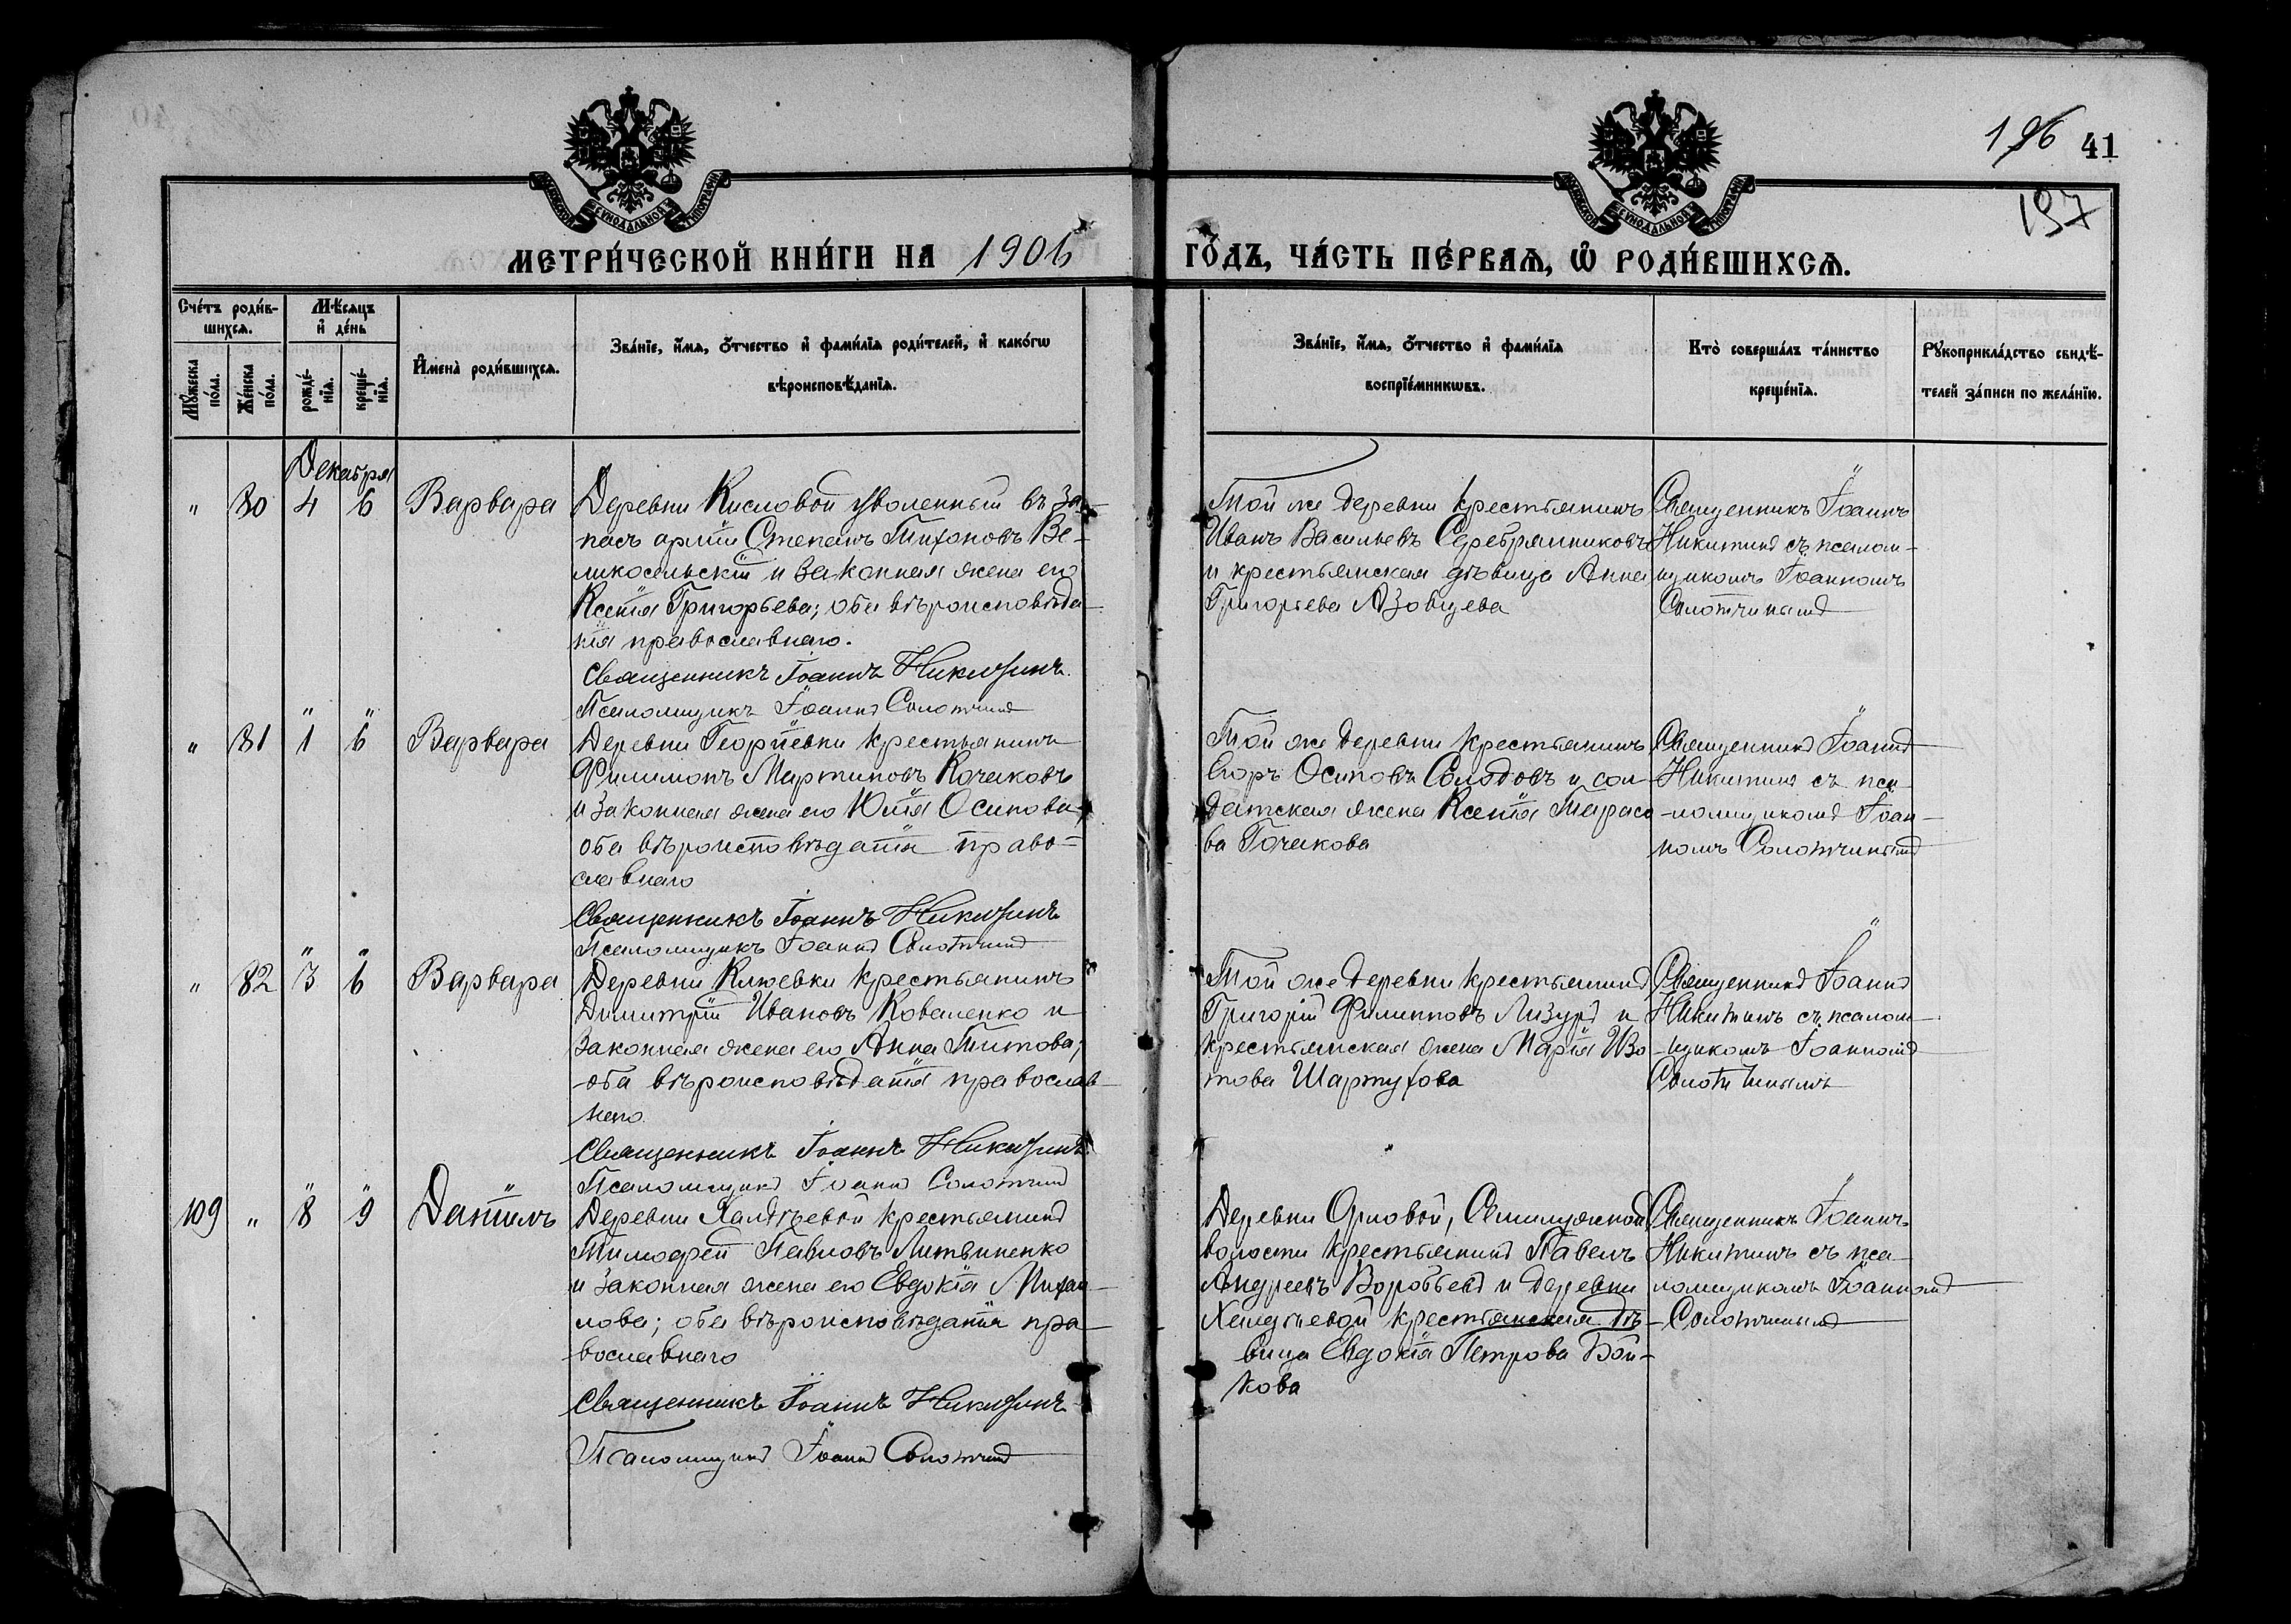 196 41
197
МОСКОВСКОЙ СѴНОДАЛЬНОЙ ТИПОГРАФІИ
МОСКОВСКОЙ СѴНОДАЛЬНОЙ ТИПОГРАФІИ
МЕТРИ́ЧЕСКОЙ КНИ́ГИ НА 1906 ГО́ДЪ, ЧА́СТЬ ПЕ́РВАѦ, Ѡ҆ РОДИ́ВШИХСѦ.
Сче́тъ роди́в-
шихсѧ.
Мꙋ́жеска по́ла.
Же́нска по́ла.
Мѣ́сѧцъ и҆ де́нь
рожде́нїѧ.
креще́нїѧ.
И҆мена̀ роди́вшихсѧ.
Зва́нїе, и҆́мѧ, ѻ҆́тчество и҆ фами́лїѧ роди́телей, и҆ како́гѡ
вѣроисповѣ́данїѧ.
Зва́нїе, и҆́мѧ, ѻ҆́тчество и҆ фами́лїѧ
воспрїе́мникѡвъ.
Кто̀ соверша́лъ та́инство
креще́нїѧ.
Рꙋкоприкла́дство свидѣ́-
телей за́писи по жела́нїю.
Декабря
" 80 4 6 Варвара
Деревни Кисловой уволенный въ за-
пасъ арміи Степанъ Тихоновъ Ве-
ликосельскій и законная жена его
Ксенія Григорьева; оба вѣроисповѣда-
нія православнаго.
Священникъ Іоаннъ Никитинъ.
Псаломщикъ Іоаннъ Солотчинъ
Той же деревни крестьянинъ
Иванъ Васильевъ Серебрянниковъ
и крестьянская дѣвица Анна
Григорьева Азовцева
Священникъ Іоаннъ
Никитинъ съ псалом-
щикомъ Іоанномъ
Солотчинымъ
" 81 1 6 Варвара
Деревни Георгіевки крестьянинъ
Филимонъ Мартиновъ Кочаковъ
и законная жена его Юлія Осипова
оба вѣроисповѣданія право-
славнаго
Священникъ Іоаннъ Никитинъ
Псаломщикъ Іоаннъ Солотчинъ
Той же деревни крестьянинъ
Егоръ Осиповъ Солодовъ и сол-
датская жена Ксенія Тарасо
ва Гочакова
Священникъ Іоаннъ
Никитинъ съ пса-
ломщикомъ Іоан-
номъ Солотчинымъ
" 82 3 6 Варвара
Деревни Клюевки крестьянинъ
Димитрій Ивановъ Коваленко и
законная жена его Анна Титова;
оба вѣроисповѣданія православ-
наго
Священникъ Іоаннъ Никитинъ
Псаломщикъ Іоаннъ Солотчинъ
Той же деревни крестьянинъ
Григорій Филипповъ Лизуръ и
крестьянская жена Марія Изо
това Шартухова
Священникъ Іоаннъ
Никитинъ съ псалом-
щикомъ Іоанномъ
Солотчинымъ
109 " 8 9 Даніилъ
Деревни Халдѣевой крестьянинъ
Тимофей Павловъ Литвиненко
и законная жена его Евдокія Михаи-
лова; оба вѣроисповѣданія пра-
вославнаго
Священникъ Іоаннъ Никитинъ
Псаломщикъ Іоаннъ Солотчинъ
Деревни Орловой, Семилужной
волости крестьянинъ Павелъ
Андреевъ Воробьевъ и деревни
Халдѣевой крестьянская дѣ-
вица Евдокія Петрова Бой-
кова
Священникъ Іоаннъ
Никитинъ съ пса-
ломщикомъ Іоанномъ
Солотчинымъ